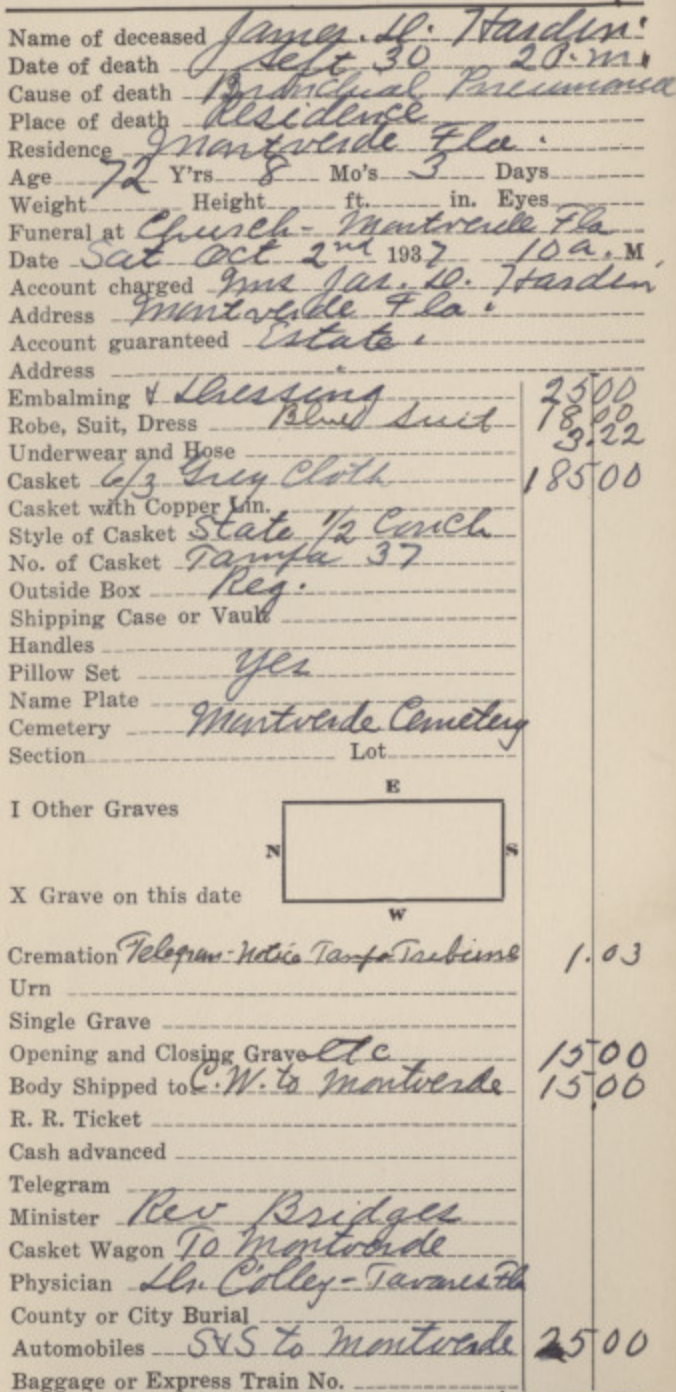 Name of deceased James. D. Hardin.
Date of death Sept 30 2 P.m.
Cause of death Pneumonia
Place of death Residence
Residence Montverde Fla.
Age 72 Y'rs 8 Mo's 3 Days
Weight Height ft. in. Eyes
Funeral at Church - Montverde Fla
Date Sat Oct 2nd 1937 10 a. M
Account charged Mrs Jas. D. Hardin
Address Montverde Fla.
Account guaranteed Estate.
Address
Embalming & Dressing 25 00
Robe, Suit, Dress Blue Suit 18.00
Underwear and Hose 3.22
Casket 6/3 Grey Cloth 185 00
Casket with Copper Lin.
Style of Casket State 1/2 Couch
No. of Casket Tampa 37
Outside Box Reg.
Shipping Case or Vault
Handles
Pillow Set Yes
Name Plate
Cemetery Montverde Cemetery
Section Lot
E
I Other Graves
N S
X Grave on this date
W
Cremation Telegram-Notice Tampa Tribune 1.03
Urn
Single Grave
Opening and Closing Grave etc 15 00
Body Shipped to C.W. to Montverde 15 00
R. R. Ticket
Cash advanced
Telegram
Minister Rev Bridges
Casket Wagon To Montverde
Physician Dr. Colley - Tavares Fla
County or City Burial
Automobiles S&S to Montverde 25 00
Baggage or Express Train No.